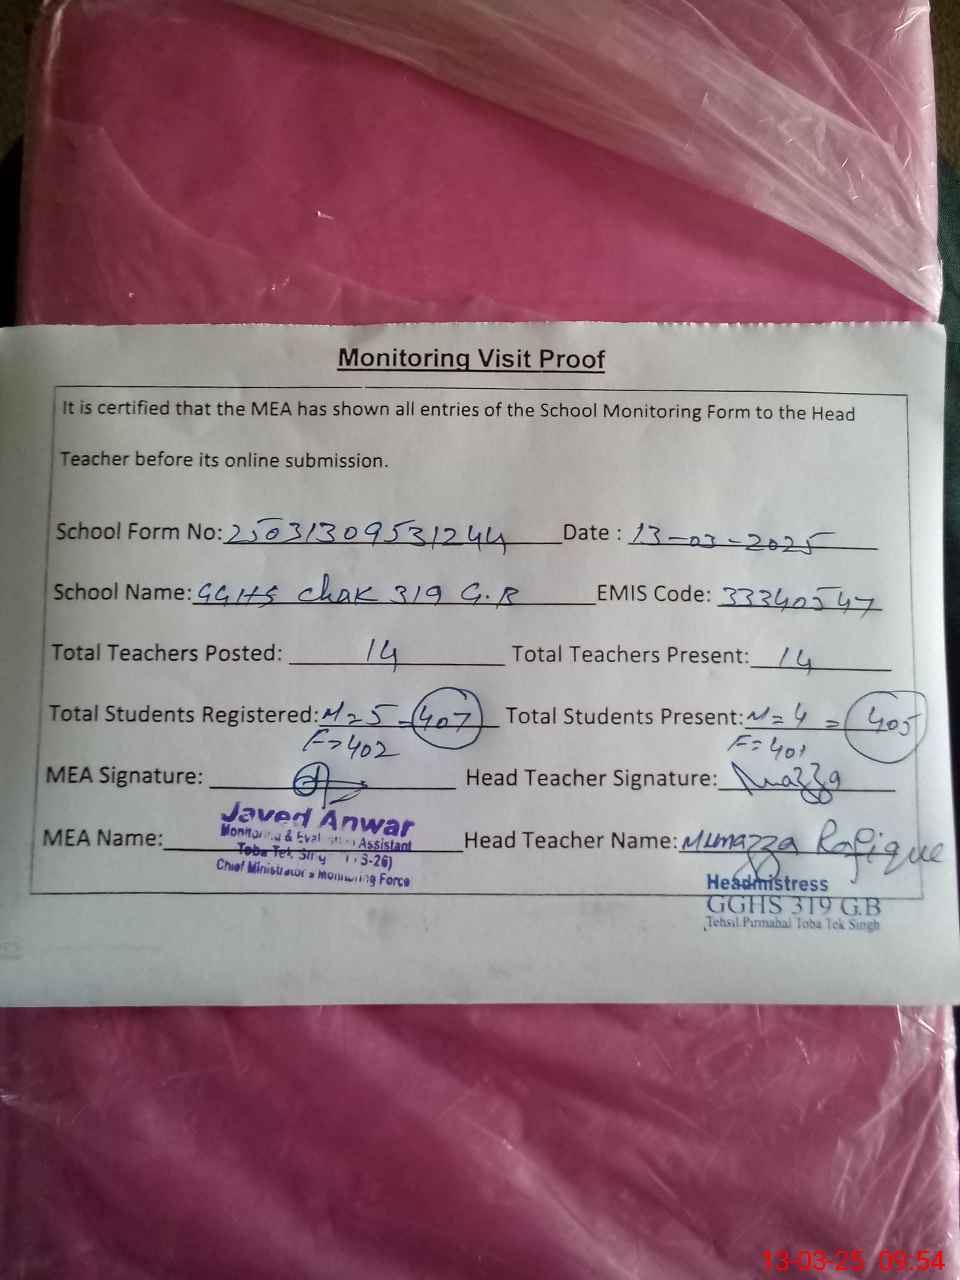 Monitoring Visit Proof
It is certified that the MEA has shown all entries of the School Monitoring Form to the Head
Teacher before its online submission.
School Form No: 25031309531244 Date : 13-03-2025
School Name: GGHS Chak 319 G.B EMIS Code: 33340547
Total Teachers Posted: 14 Total Teachers Present: 14
Total Students Registered: M=5 = 407 Total Students Present: M=4 = 405
F=402 F=401
MEA Signature: Head Teacher Signature: Mumazza
MEA Name: Head Teacher Name: Mumazza Rafique
Javed Anwar
Monitoring & Evaluation Assistant
Toba Tek
Chief Minister's Monitoring Force
Headmistress
GGHS 319 G.B
Tehsil Pirmahal Toba Tek Singh
13-03-25 09:54